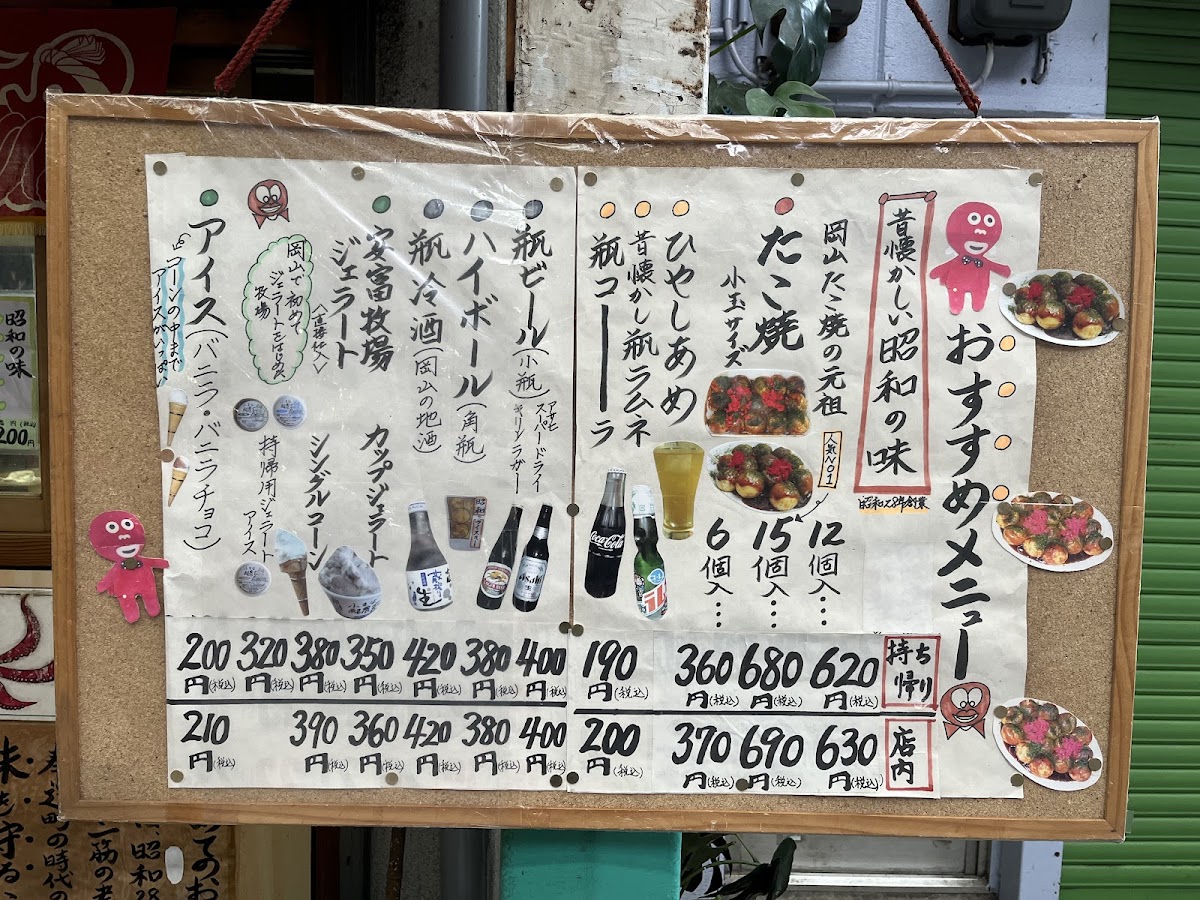 おすすめメニュー
昔懐かしい昭和の味
昭和28年創業
岡山たこ焼の元祖
人気NO1
たこ焼
小玉サイズ
12個入・・・
15個入・・・
6個入・・・
ひやしあめ
昔懐かし瓶ラムネ
瓶コーラ
Coca-Cola
瓶ビール(小瓶)
アサヒスーパードライ
キリンラガー
Asahi
KIRIN
ハイボール(角瓶)
瓶冷酒(岡山の地酒)
安富牧場
ジェラート
<直接仕入>
カップジェラート
シングルコーン
持帰用ジェラート
アイス
岡山で初めて
ジェラートをはじめた
牧場
アイス(バニラ・バニラチョコ)
コーンの中まで
アイスがいっぱい
持ち帰り
620円(税込)
680円(税込)
360円(税込)
190円(税込)
400円(税込)
380円(税込)
420円(税込)
350円(税込)
380円(税込)
320円(税込)
200円(税込)
店内
630円(税込)
690円(税込)
370円(税込)
200円(税込)
400円(税込)
380円(税込)
420円(税込)
360円(税込)
390円(税込)
210円(税込)
昭和の味
200円